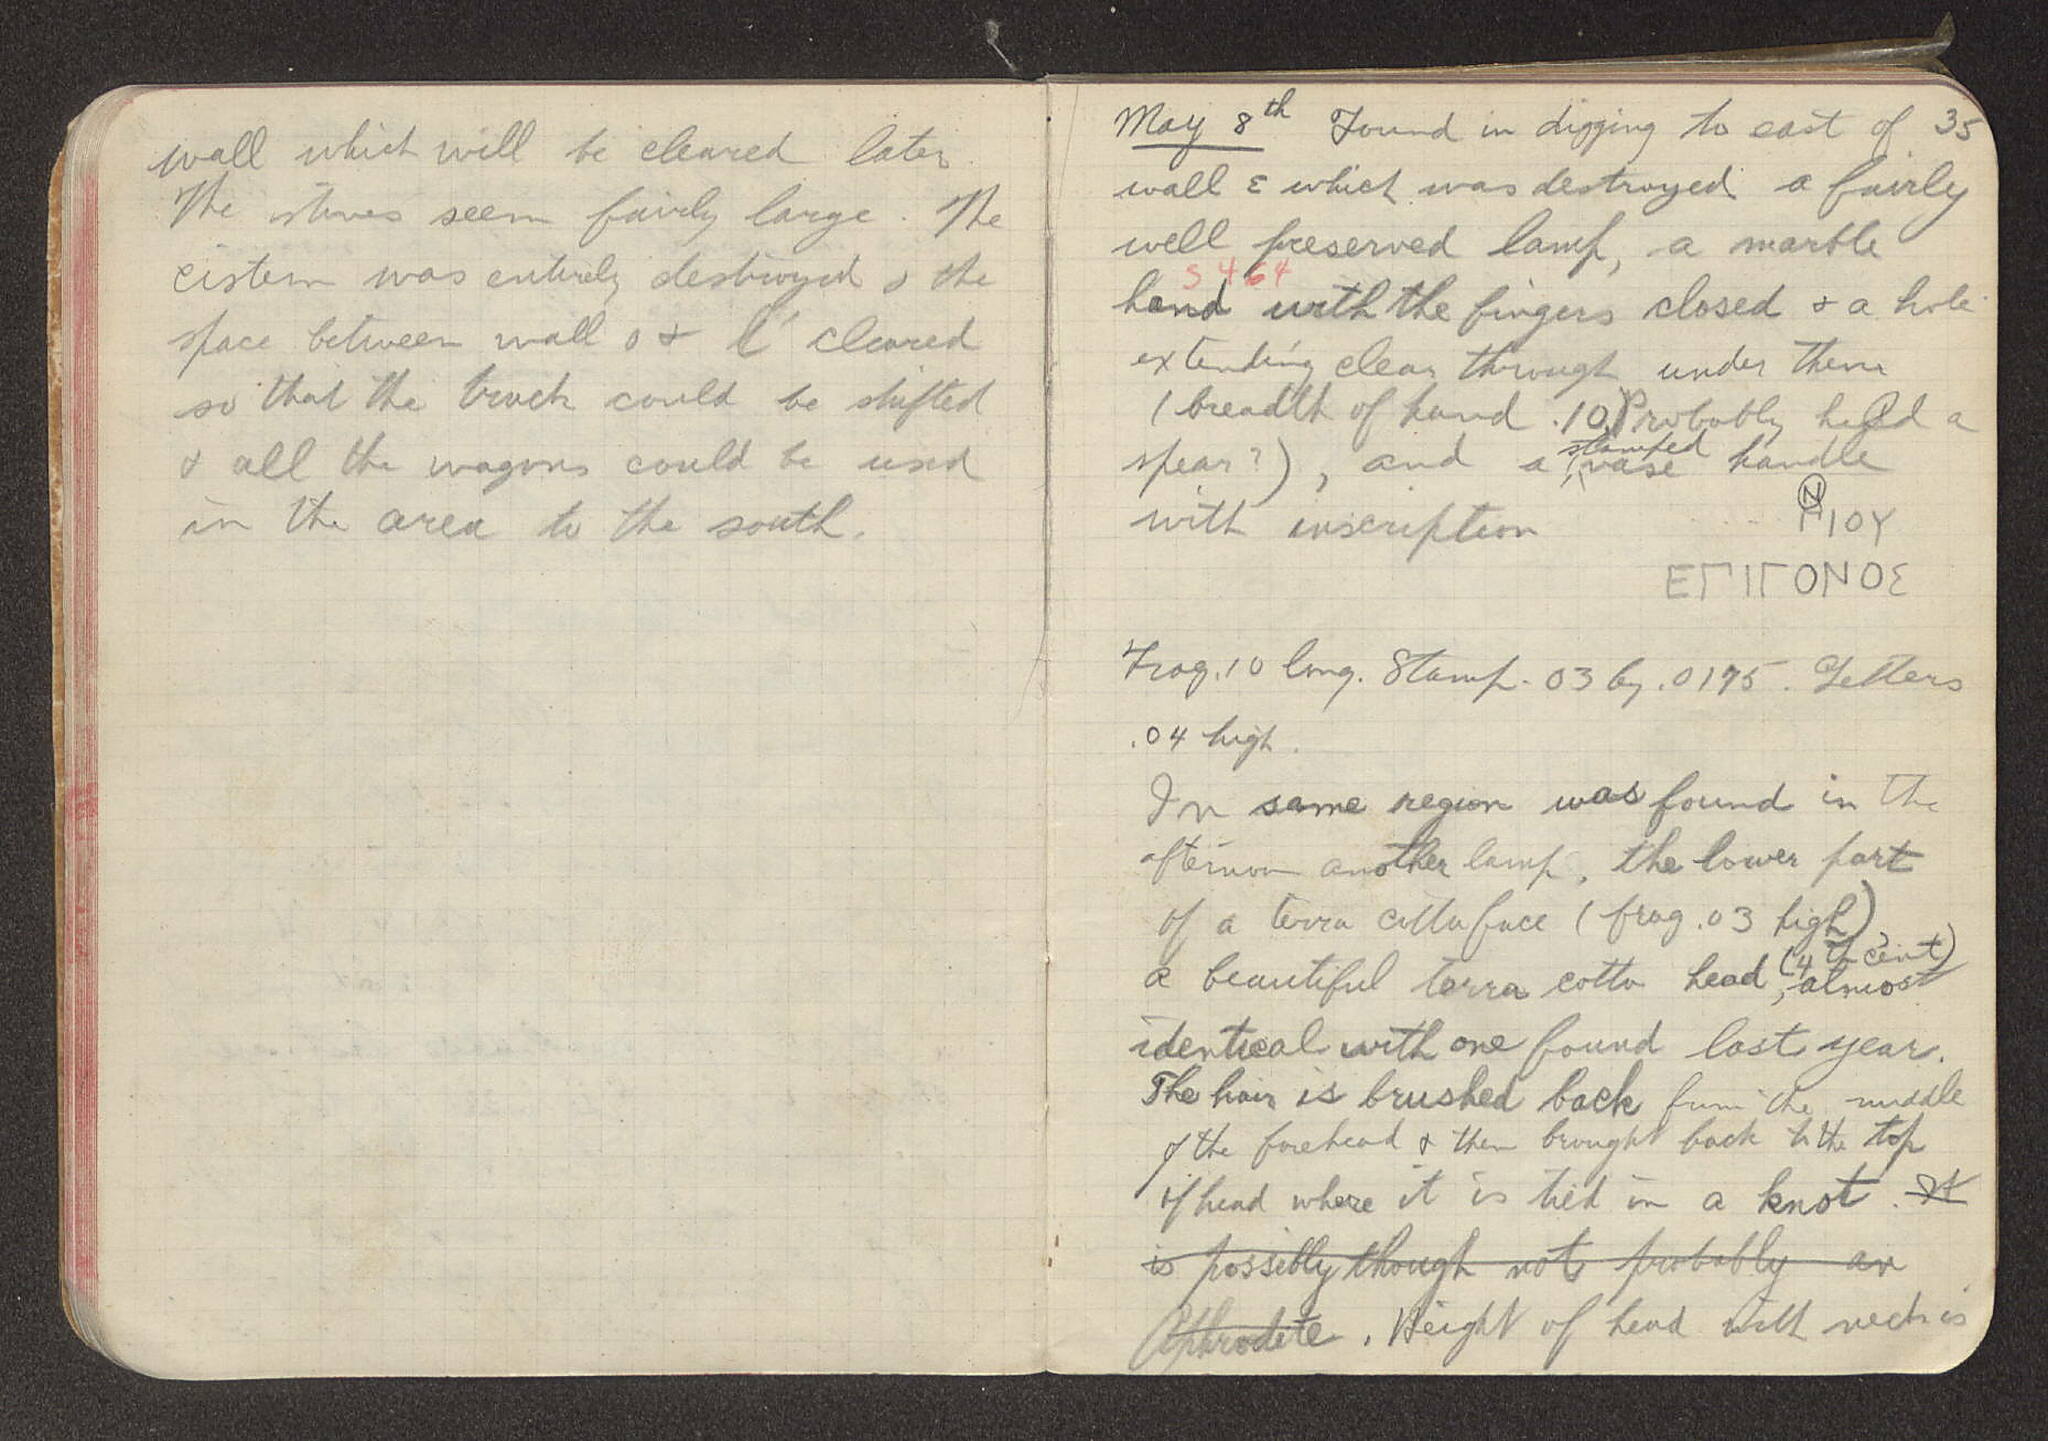 wall which will be cleared later.
The stones seem fairly large. The
cistern was entirely destroyed & the
space between wall o & l' cleared
so that the track could be shifted
& all the wagons could be used
in the area to the south.
35
May 8th Found in digging to east of
wall ε which was destroyed a fairly
well preserved lamp, a marble
S 464
hand with the fingers closed & a hole
extending clear through under them
(breadth of hand .10) Probably held a
spear?), and a stamped vase handle
with inscription
ΝΙΟΥ
ΕΠΙΓΟΝΟΣ
Frag .10 long. Stamp .03 by .0195. Letters
.04 high.
In same region was found in the
afternoon another lamp, the lower part
of a terra cotta face (frag .03 high)
a beautiful terra cotta head (4th cent), almost
identical with one found last year.
The hair is brushed back from the middle
of the forehead & then brought back to the top
of head where it is tied in a knot. It
is possibly though not probably an
Aphrodite. Height of head with neck is